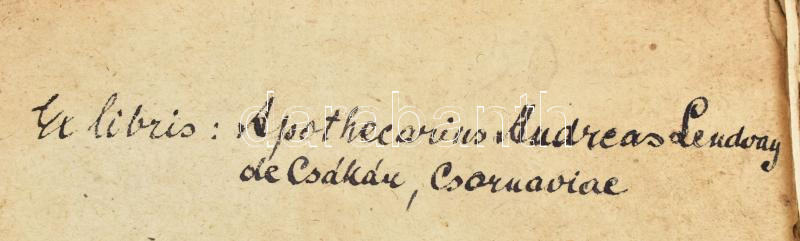 Ex libris: Apothecarius Andreas Lendvay
de Csákán, Csornaviae
darabanth